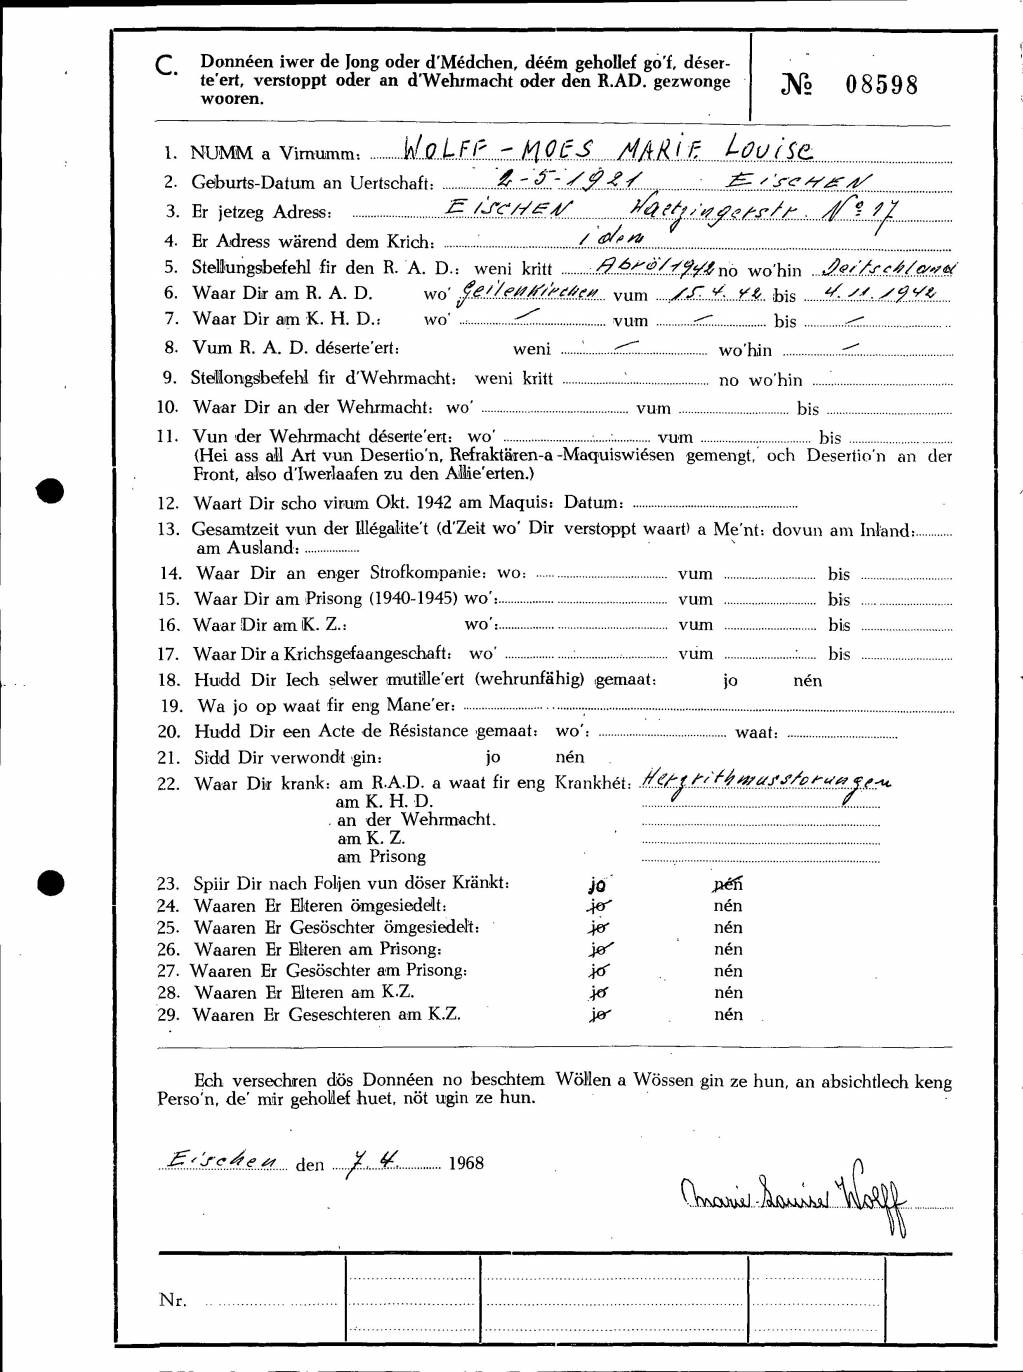 C. Donnéen iwer de Jong oder d'Médchen, déém gehollef go'f, déser-
te'ert, verstoppt oder an d'Wehrmacht oder den R.AD. gezwonge
wooren.
№ 08598
1. NUMM a Virnumm: WOLFF - MOES MARIE Louise
2. Geburts-Datum an Uertschaft: 2-5-1921 EISCHEN
3. Er jetzeg Adress: EISCHEN Waetzingerstr. N° 17
4. Er Adress wärend dem Krich: idem
5. Stellungsbefehl fir den R. A. D.: weni kritt Abröl 1942 no wo'hin Deitschland
6. Waar Dir am R. A. D. wo' Geilenkirchen vum 15. 4. 42. bis 4. 11. 1942
7. Waar Dir am K. H. D.: wo' — vum — bis —
8. Vum R. A. D. déserte'ert: weni — wo'hin —
9. Stellongsbefehl fir d'Wehrmacht: weni kritt no wo'hin
10. Waar Dir an der Wehrmacht: wo' vum bis
11. Vun der Wehrmacht déserte'ert: wo' vum bis
(Hei ass all Art vun Desertio'n, Refraktären-a-Maquiswiésen gemengt, och Desertio'n an der
Front, also d'Iwerlaafen zu den Allie'erten.)
12. Waart Dir scho virum Okt. 1942 am Maquis: Datum:
13. Gesamtzeit vun der Illégalite't (d'Zeit wo' Dir verstoppt waart) a Me'nt: dovun am Inland:
am Ausland:
14. Waar Dir an enger Strofkompanie: wo: vum bis
15. Waar Dir am Prisong (1940-1945) wo': vum bis
16. Waar Dir am K. Z.: wo': vum bis
17. Waar Dir a Krichsgefaangeschaft: wo' vum bis
18. Hudd Dir Iech selwer mutille'ert (wehrunfähig) gemaat: jo nén
19. Wa jo op waat fir eng Mane'er:
20. Hudd Dir een Acte de Résistance gemaat: wo': waat:
21. Sidd Dir verwondt gin: jo nén
22. Waar Dir krank: am R.A.D. a waat fir eng Krankhét: Hergrithmusstorungen
am K. H. D.
an der Wehrmacht.
am K. Z.
am Prisong
23. Spiir Dir nach Foljen vun döser Kränkt: jo nén
24. Waaren Er Elteren ömgesiedelt: jo nén
25. Waaren Er Gesöschter ömgesiedelt: jo nén
26. Waaren Er Elteren am Prisong: jo nén
27. Waaren Er Gesöschter am Prisong: jo nén
28. Waaren Er Elteren am K.Z. jo nén
29. Waaren Er Geseschteren am K.Z. jo nén
Ech versechren dös Donnéen no beschtem Wöllen a Wössen gin ze hun, an absichtlech keng
Perso'n, de' mir gehollef huet, nöt ugin ze hun.
Eischen den 7. 4. 1968
Marie-Louise Wolff
Nr.